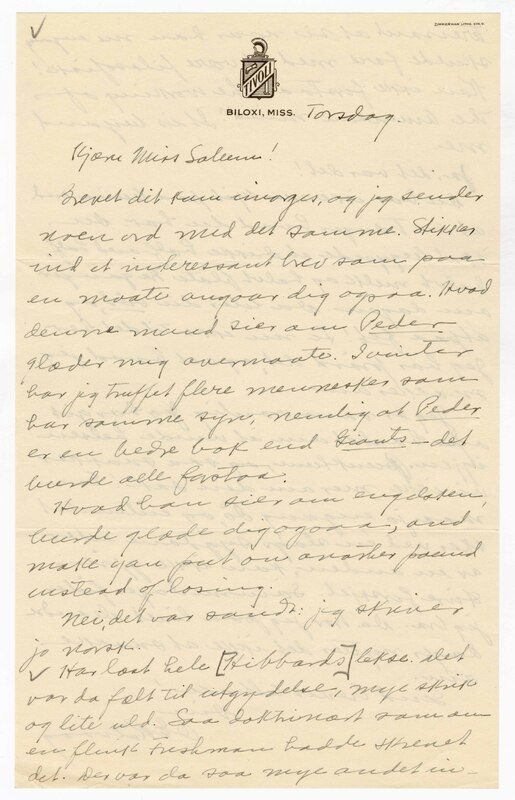 ZIMMERMAN LITHO. CIN. O.
TIVOLI
BILOXI, MISS. Torsdag.
Kjære Miss Salem!
Brevet dit kam imorges, og jeg sender
noen ord med det samme. Stikker
ind et interessant brev som paa
en maate angaar dig ogsaa. Hvad
denne mand sier om Peder
glæder mig overmaate. I vinter
har jeg truffet flere mennesker som
har samme syn, nemlig at Peder
er en bedre bok end Giants — det
burde alle forstaa.
Hvad han sier om engelsken,
burde glæde dig ogsaa, and
make you put on another pound
instead of losing.
Nei, det var sandt: jeg skriver
jo norsk.
✓ Har læst hele [Hibbards] lekse. Det
var da fælt til utgydelse, mye skrik
og lite uld. Saa doktrinært som om
en flink Freshman hadde skrevet
det. Der var da saa mye andet in-